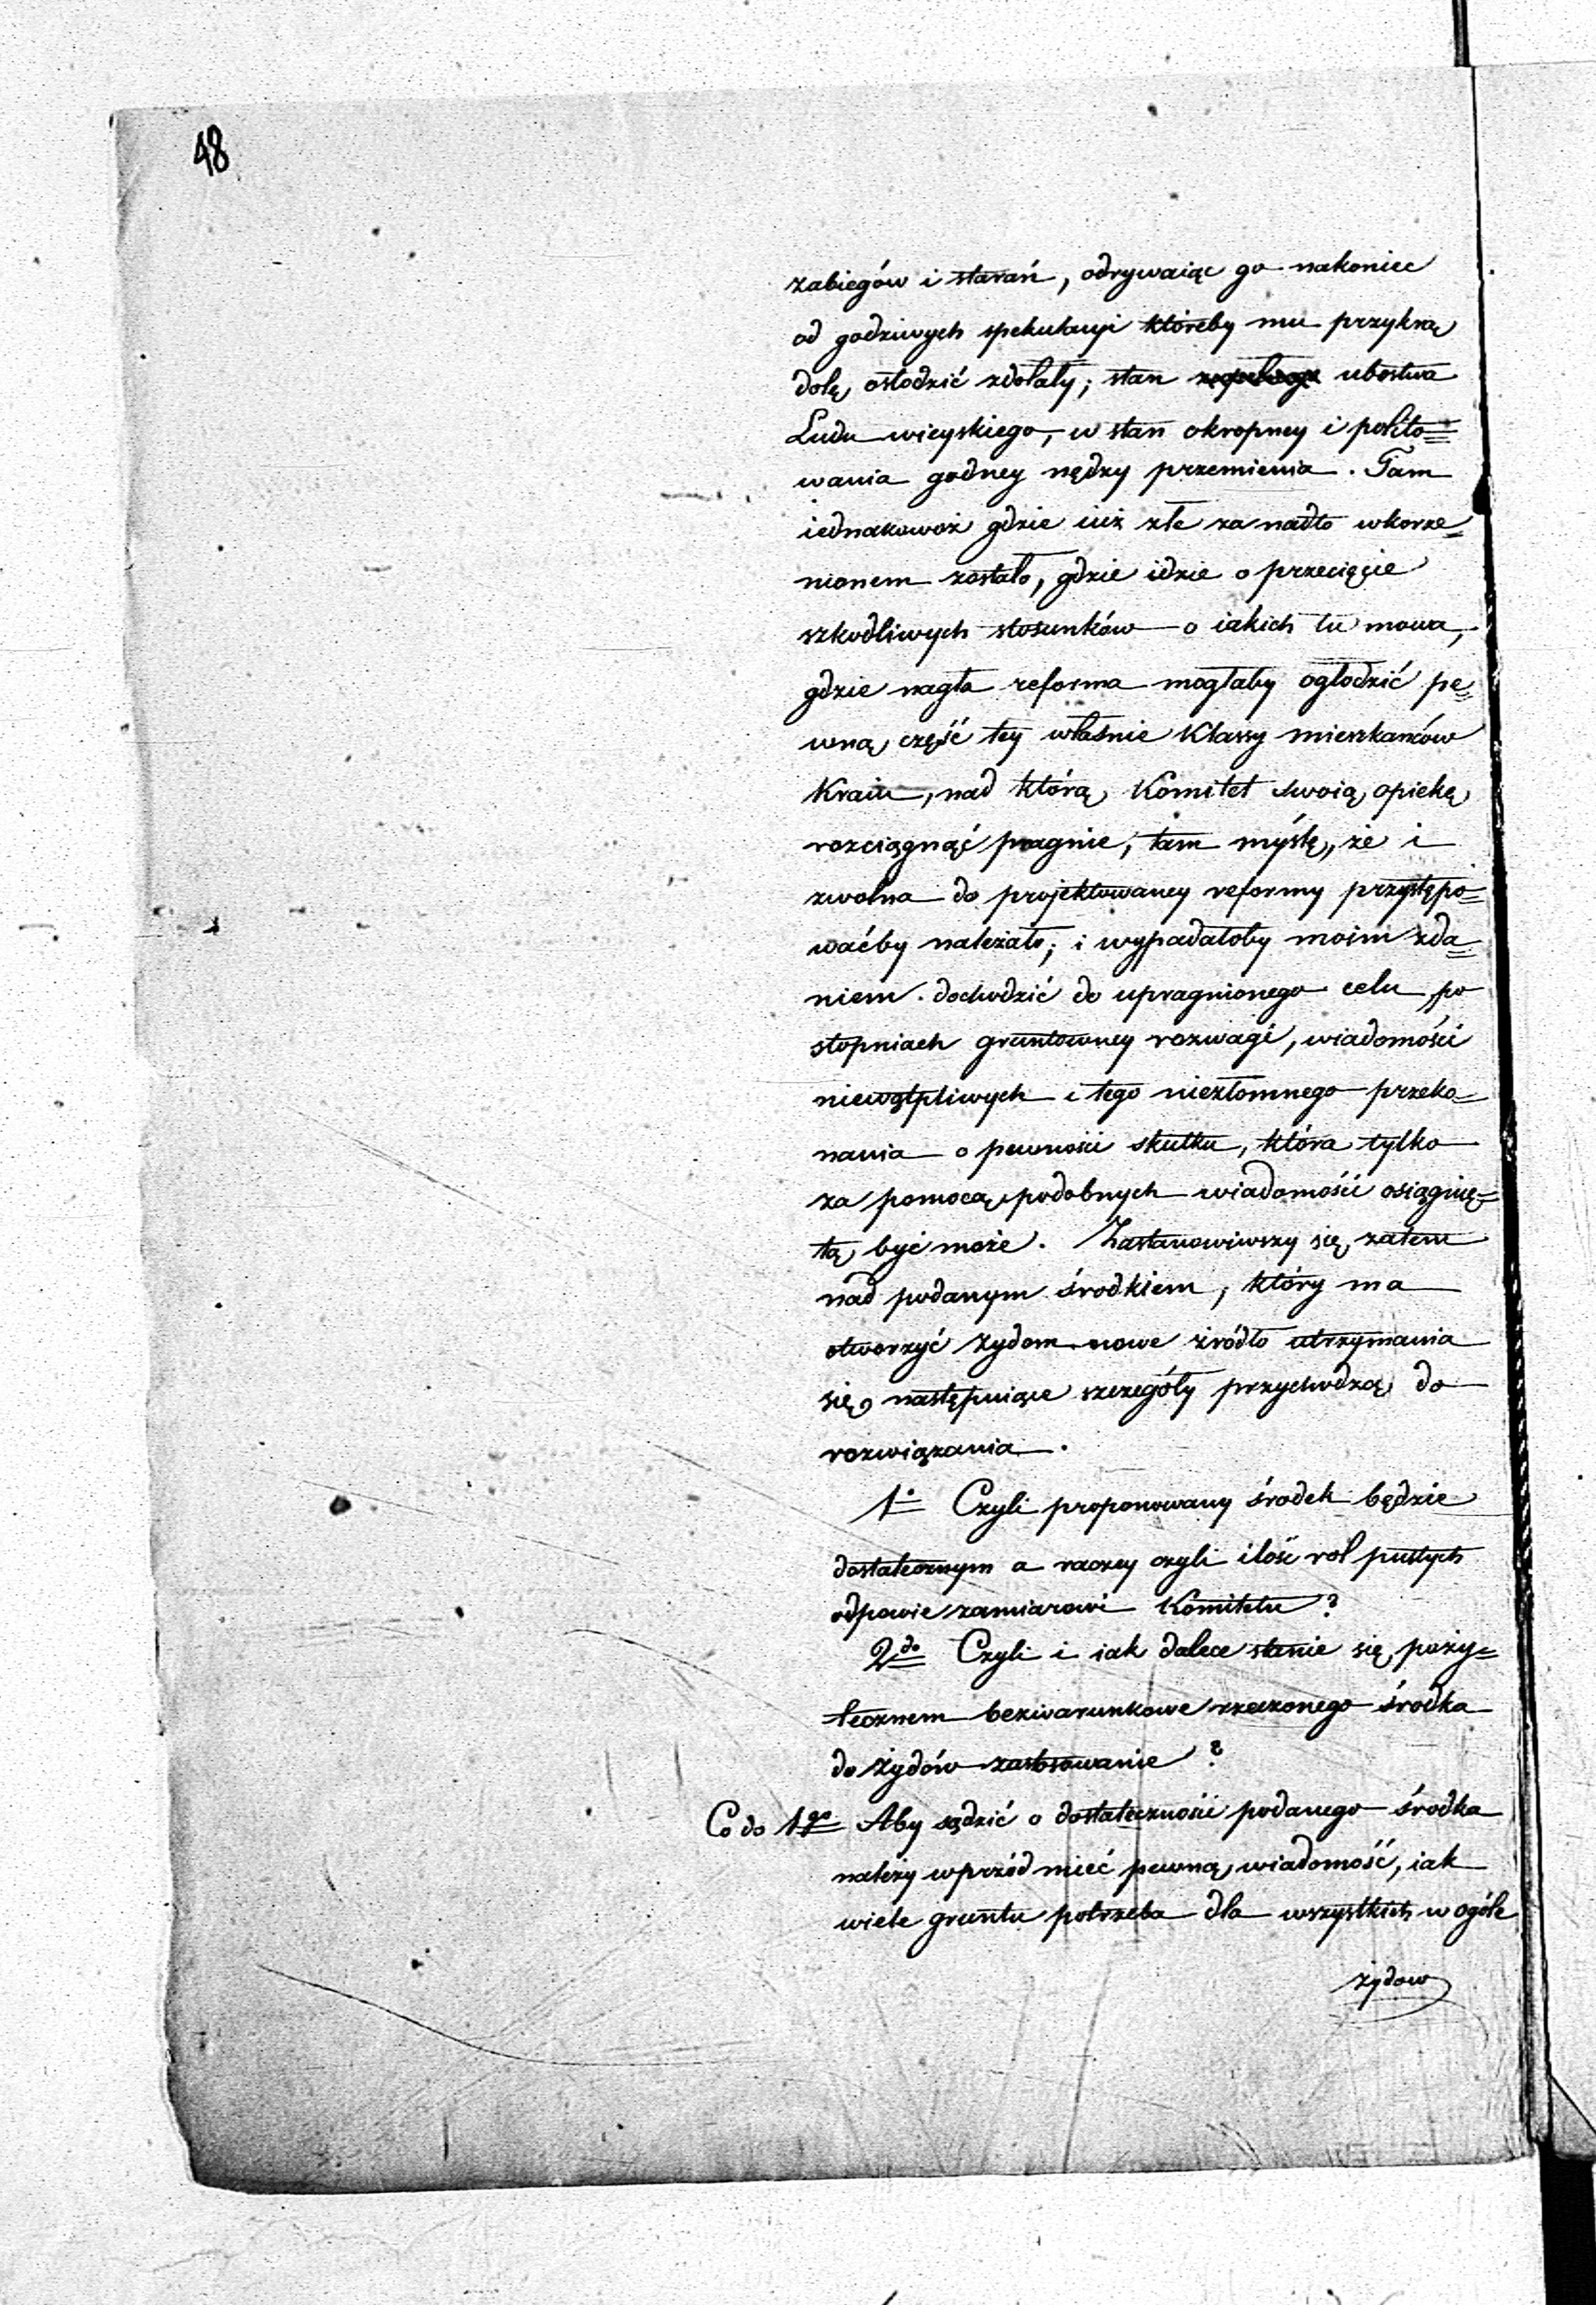 48
zabiegów i starań, odrywaiąc go nakoniec
od godziwych spekulacyi któreby mu przykrą
dolę osłodzić zdołały; stan ubóstwa
Ludu wieyskiego, w stan okropney i polito=
wania godney nędzy przemienia. Tam
iednakowoż gdzie iuż złe za nadto wkorze=
nionem zostało, gdzie idzie o przecięcie
szkodliwych stosunków o iakich tu mowa,
gdzie nagła reforma mogłaby ogłodzić pe=
wną część tey właśnie Klassy mieszkańców
Kraiu, nad którą Komitet swoią opiekę
rozciągnąć pragnie, tam myślę, że i
zwolna do projektowaney reformy przystępo=
waćby należało; i wypadałoby moim zda=
niem dochodzić do upragnionego celu po
stopniach gruntowney rozwagi, wiadomości
niewątpliwych i tego niezłomnego przeko=
nania o pewności skutku, która tylko
za pomocą podobnych wiadomości osiągnię=
tą być może. Zastanowiwszy się zatem
nad podanym środkiem, który ma
otworzyć żydom nowe źródło utrzymania
się, następuiące szczegóły przychodzą do
rozwiązania.
1° Czyli proponowany środek będzie
dostatecznym a raczey czyli ilość ról pustych
odpowie zamiarowi Komitetu?
2do Czyli i iak dalece stanie się poży=
tecznem bezwarunkowe rzeczonego środka
do żydów zastosowanie?
Co do 1go Aby sądzić o dostateczności podanego środka
należy wprzód mieć pewną wiadomość, iak
wiele gruntu potrzeba dla wszystkich w ogóle
żydow